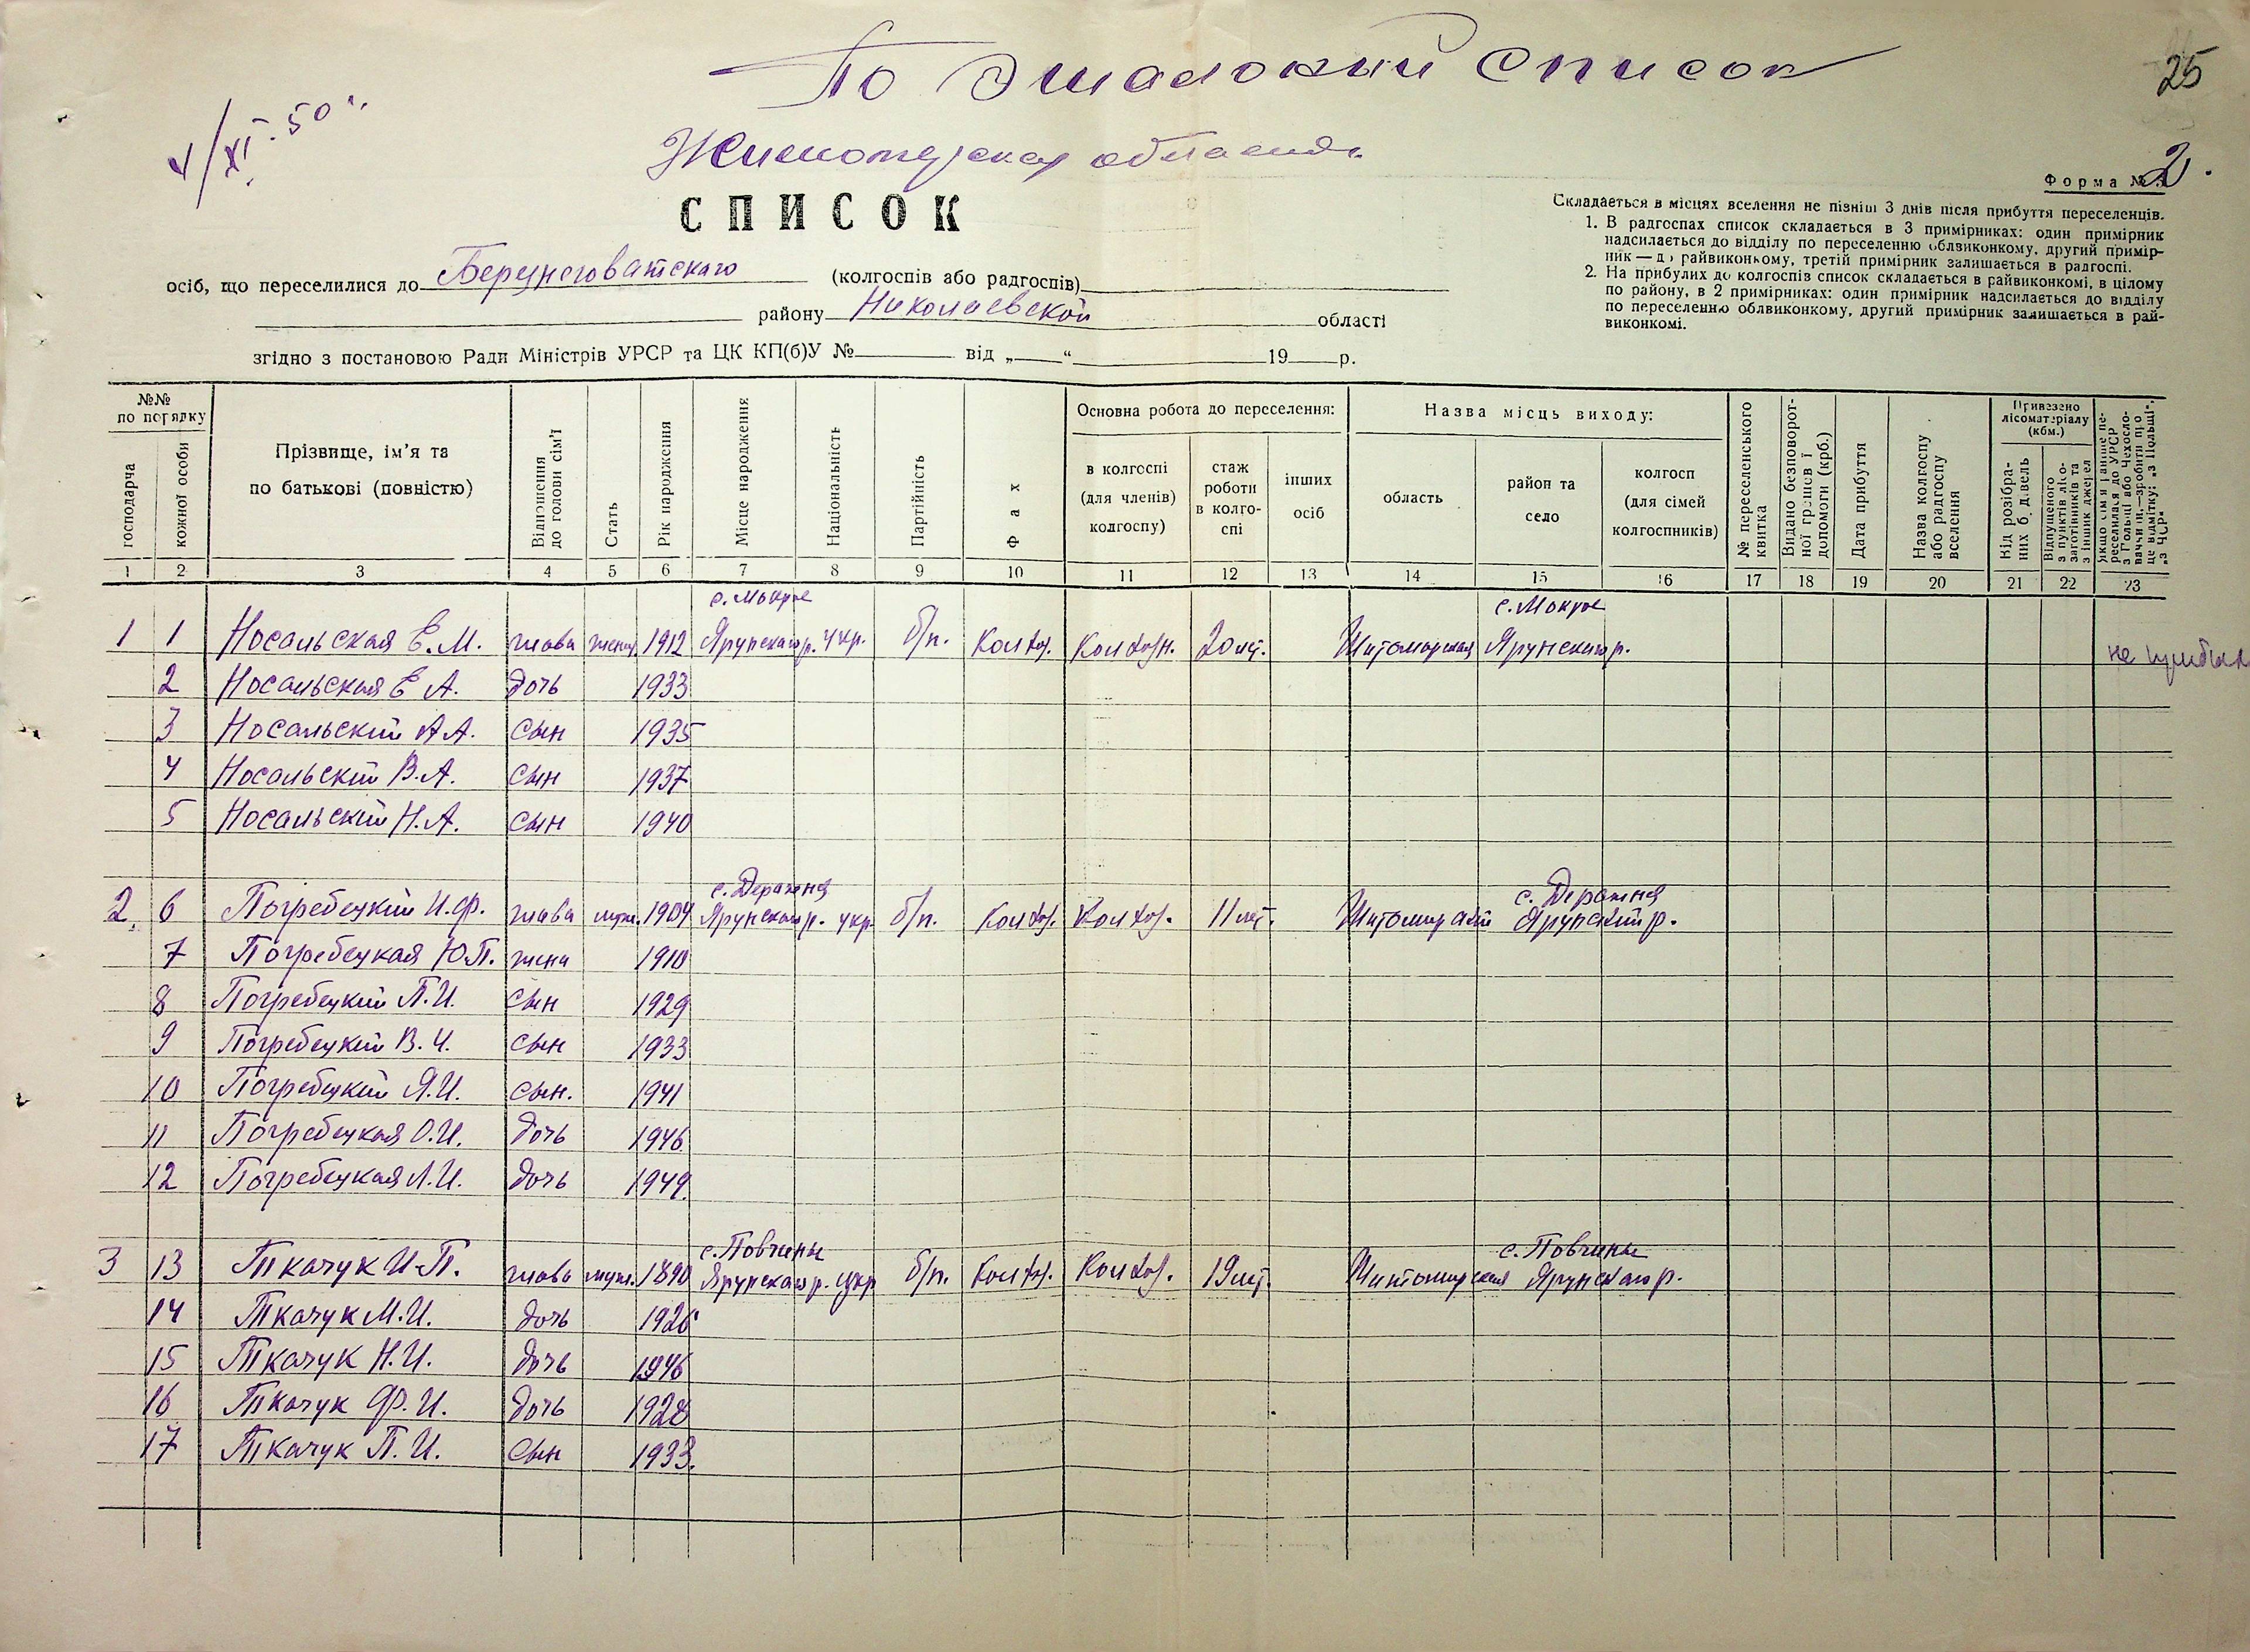 По Эшалонный список
25
V/XI. 50 г.
Житомирская область
2.
Форма №
СПИСОК
Складається в місцях вселення не пізніш 3 днів після прибуття переселенців.
1. В радгоспах список складається в 3 примірниках: один примірник
надсилається до відділу по переселенню облвиконкому, другий примір-
ник — до райвиконкому, третій примірник залишається в радгоспі.
2. На прибулих до колгоспів список складається в райвиконкомі, в цілому
по району, в 2 примірниках: один примірник надсилається до відділу
по переселенню облвиконкому, другий примірник залишається в рай-
виконкомі.
осіб, що переселилися до Березнеговатского (колгоспів або радгоспів)
району Николаевской області
згідно з постановою Ради Міністрів УРСР та ЦК КП(б)У № від „ “ 19 р.
№№ по порядку
господарча
кожної особи
Прізвище, ім'я та
по батькові (повністю)
Відношення до голови сім'ї
Стать
Рік народження
Місце народження
Національність
Партійність
Фах
Основна робота до переселення:
в колгоспі (для членів) колгоспу)
стаж роботи в колго-спі
інших осіб
Назва місць виходу:
область
район та село
колгосп (для сімей колгоспників)
№ переселенського квитка
Видано безповорот-ної грошев ї допомоги (крб.)
Дата прибуття
Назва колгоспу або радгоспу вселення
Привезено лісоматеріалу (кбм.)
Від розібра-них будівель
Відпущеного з пунктів лісо-заготівників та з інших джерел
Якщо сім'я раніше пе-реселилася до УРСР з Польщі або Чехосло-ваччини,—зробити про це відмітку: „з Польщі“, „з ЧСР“
1 2 3 4 5 6 7 8 9 10 11 12 13 14 15 16 17 18 19 20 21 22 23
с. Мокрое с. Мокрое
1 1 Носальская Е.М. глава женщ. 1912 Ярунского р. укр. б/п. Колхоз. Колхозн. 20 лет. Житомирская Ярунского р. не прибыл
2 Носальская Е А. дочь 1933
3 Носальский А А. сын 1935
4 Носальский В.А. сын 1937
5 Носальский Н.А. сын 1940
с. Деражня с. Деражня
2. 6 Погребецкий И.Ф. глава муж. 1904 Ярунского р. укр. б/п. Колхоз. Колхоз. 11 лет. Житомирской Ярунский р.
7 Погребецкая Ю.П. жена 1910
8 Погребецкий П.И. сын 1929
9 Погребецкий В.И. сын 1933
10 Погребецкий Я.И. сын. 1941
11 Погребецкая О.И. дочь 1946
12 Погребецкая Л.И. дочь 1949.
с. Повчины с. Повчины
3 13 Ткачук И.П. глава муж. 1890 Ярунского р. укр б/п. Колхоз. Колхоз. 19 лет. Житомирская Ярунского р.
14 Ткачук М.И. дочь 1926
15 Ткачук Н.И. дочь 1946
16 Ткачук Ф.И. дочь 1928
17 Ткачук П.И. сын 1933.